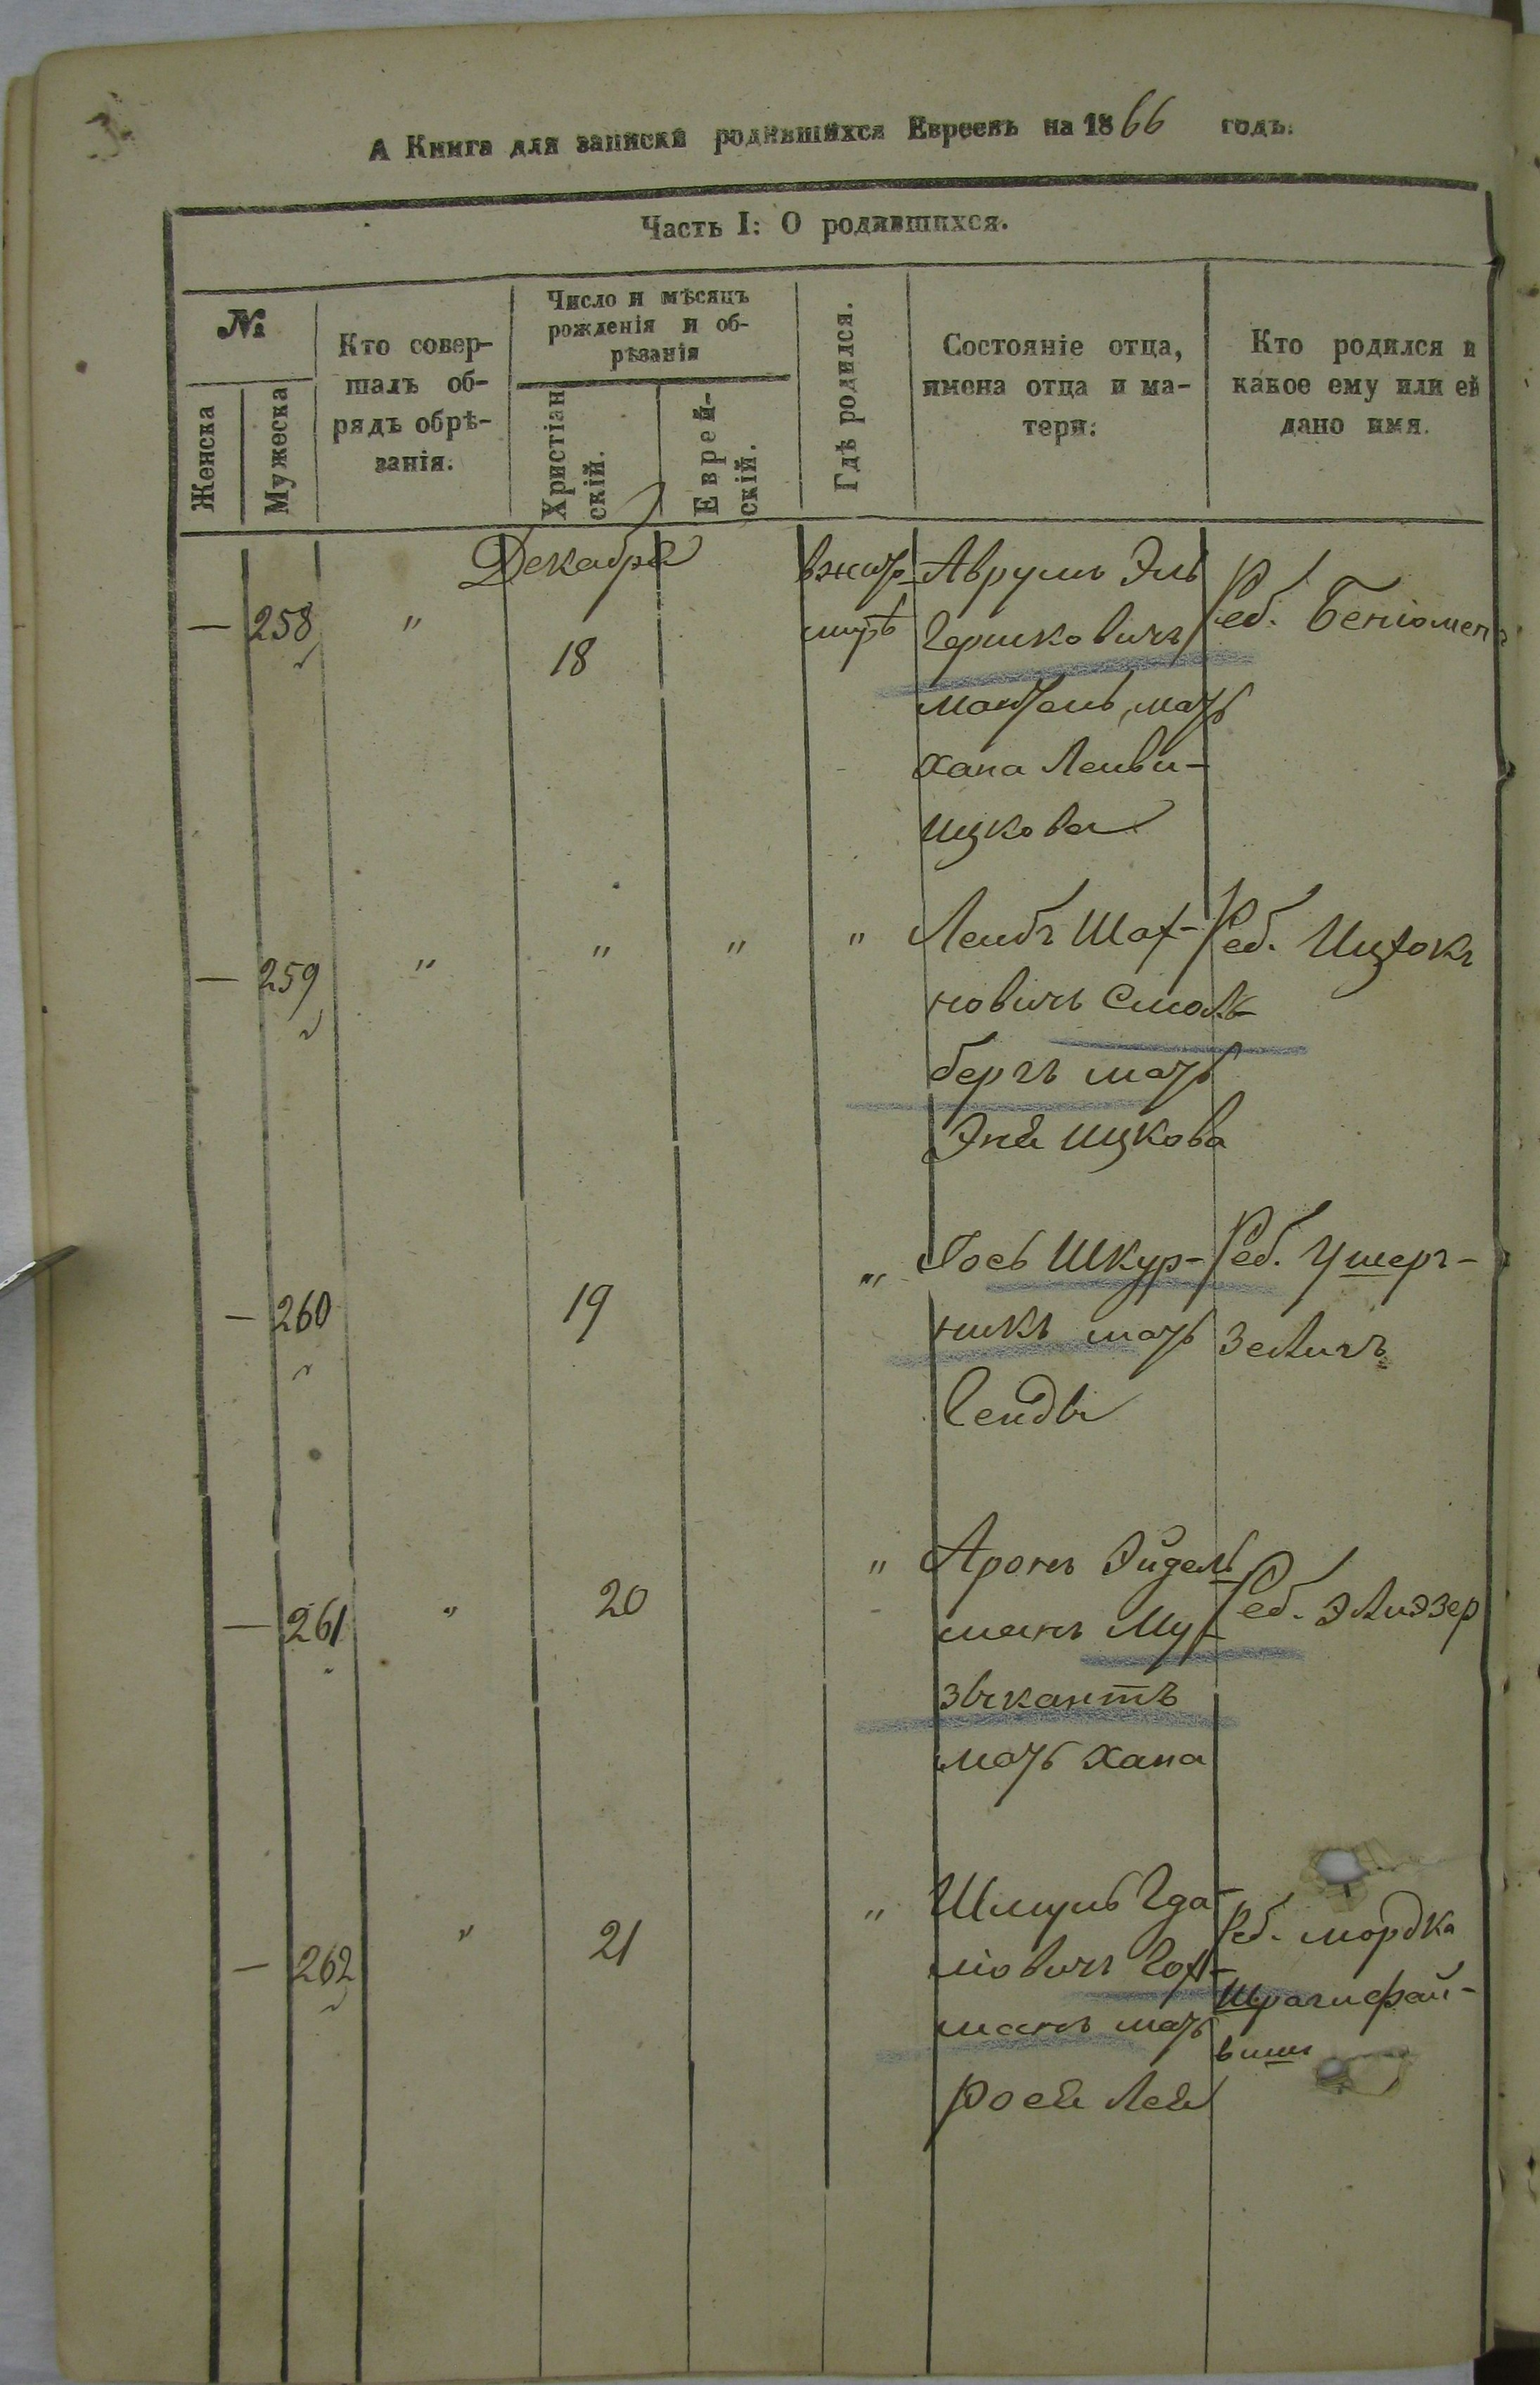 А Книга для записки родившихся Евреевъ на 1866 годъ.
Часть I: О родившихся.
№
Женска
Мужеска
Кто совер-
шалъ об-
рядъ обрѣ-
занія.
Число и мѣсяцъ
рожденія и об-
рѣзанія
Христіан
скій.
Еврей-
скій.
Гдѣ родился.
Состояніе отца,
имена отца и ма-
тери:
Кто родился и
какое ему или ей
дано имя.
Декабря
— 258 "
18
вжито-
мирѣ
Аврумъ Эль
Гершковичъ
мать
Хана Лейви-
Ицкова
Реб. Беніоменъ
— 259 " " " "
Лейбъ Шах-
новичъ Смоль-
бергъ мать
Эня Ицкова
Реб. Ицхокъ
— 260 19 "
Іось Шкур-
никъ мать
Генды
Реб. Ушеръ-
Зелигъ
— 261 " 20 "
Аронъ Эйдель
манъ Му-
зыкантъ
мать Хана
Реб. Элиэзер
— 262 " 21 "
Шмуль Гда-
ліовичъ Гох-
манъ мать
Рося Лея
Реб. Мордка
Шрагифай-
вишъ